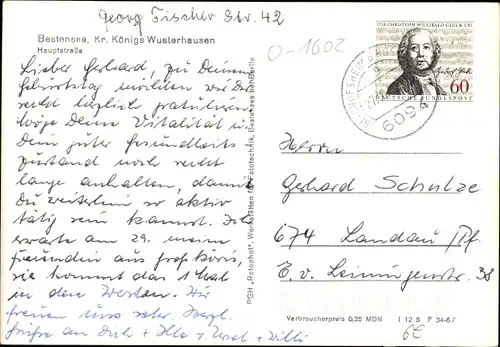 Georg Fischer Str. 42
Bestensee, Kr. Königs Wusterhausen
Hauptstraße
0-1602
Lieber Gerhard, zu Deinem
Geburtstag möchten wir Dir
recht herzlich gratulieren
Möge Deine Vitalität u.
Dein guter Gesundheits
zustand noch recht
lange anhalten, damit
Du weiterhin so aktiv
tätig sein kannst. Ich
erwarte am 29. meine
Freundin aus
sie kommt das 1. Mal
in den Westen. Wir
freuen uns sehr. Herzl.
Grüße an Dich + Ilse v. Ursel + Willi
PGH „Rotophot", Werkstätten für Fototechnik, Bestensee bei Berlin
1714 CHRISTOPH WILLIBALD GLUCK 1787
60
DEUTSCHE BUNDESPOST
BISCHOFSHEIM
6094
Herrn
Gerhard Schulze
674 Landau/Pf.
E. v. Leiningenstr. 38
Verbraucherpreis 0,25 MDN I 12 5 F 34-67
6€